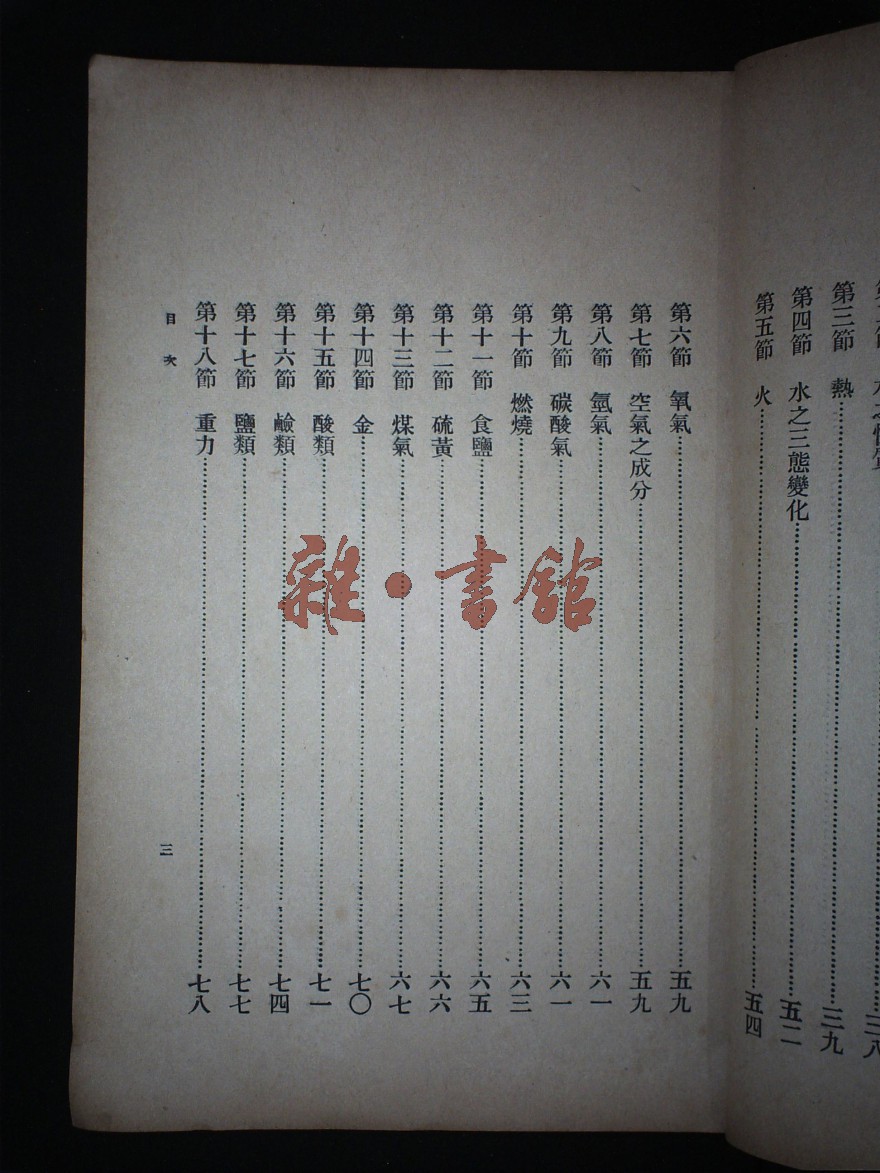 第三節　熱……三九
第四節　水之三態變化……五二
第五節　火……五四
第六節　氧氣……五九
第七節　空氣之成分……五九
第八節　氫氣……六一
第九節　碳酸氣……六一
第十節　燃燒……六三
第十一節　食鹽……六五
第十二節　硫黃……六六
第十三節　煤氣……六七
第十四節　金……七〇
第十五節　酸類……七一
第十六節　鹼類……七四
第十七節　鹽類……七七
第十八節　重力……七八
目次
三
雜・書館